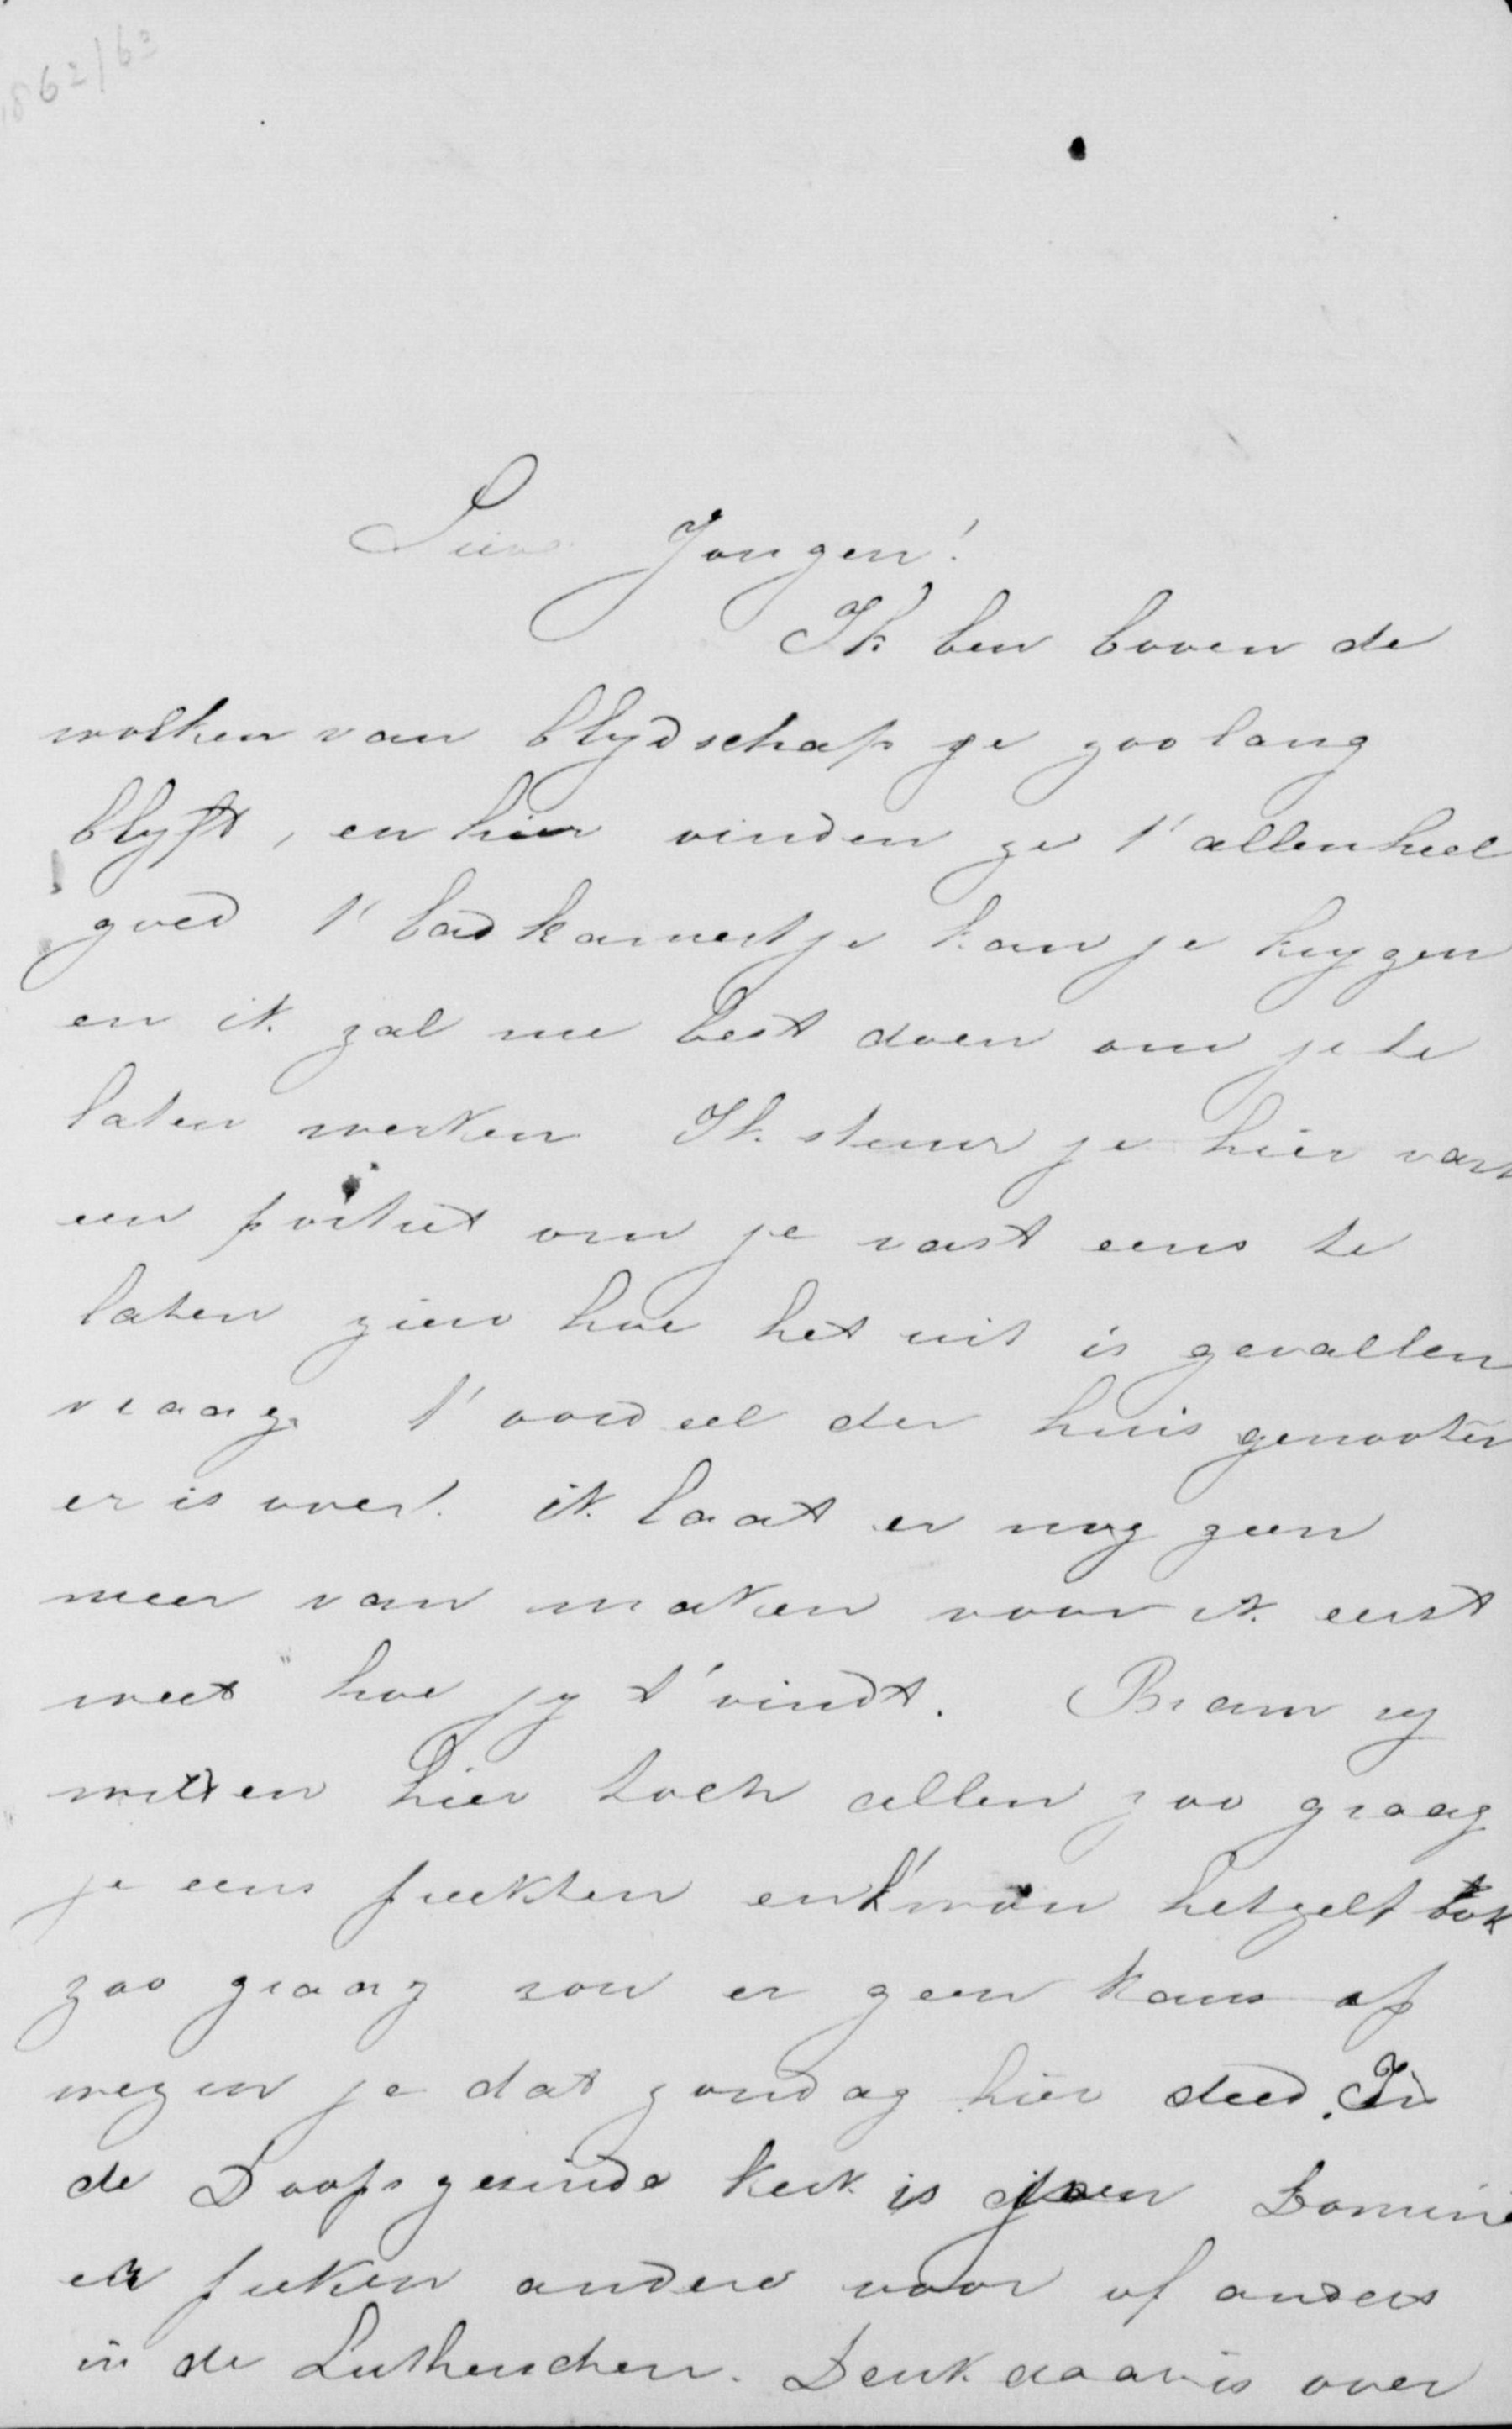 1862/63
Lieve Jongen!
Ik ben boven de
wolken van blydschap je zoo lang
blyft, en hier vinden ze t' allen heel
goed t' badkamertje kan je krygen
en ik zal me best doen om je te
laten werken Ik stuur je hier vast
een portret om je vast eens te
laten zien hoe het uit is gevallen
vraag t' oordeel der huis genooten
er is over! ik laat er nog geen
meer van maken voor ik eerst
weet hoe jy t' vindt. Bram zy
willen hier toch allen zoo graag
je eens preekten en k' wou hetzelf ook
zoo graag zou er geen kans op
wezen je dat zondag hier deed. In
de Doopsgezinde kerk is geen Dominé
er preken andere voor of anders
in de Lutherschen. Denk daar is over